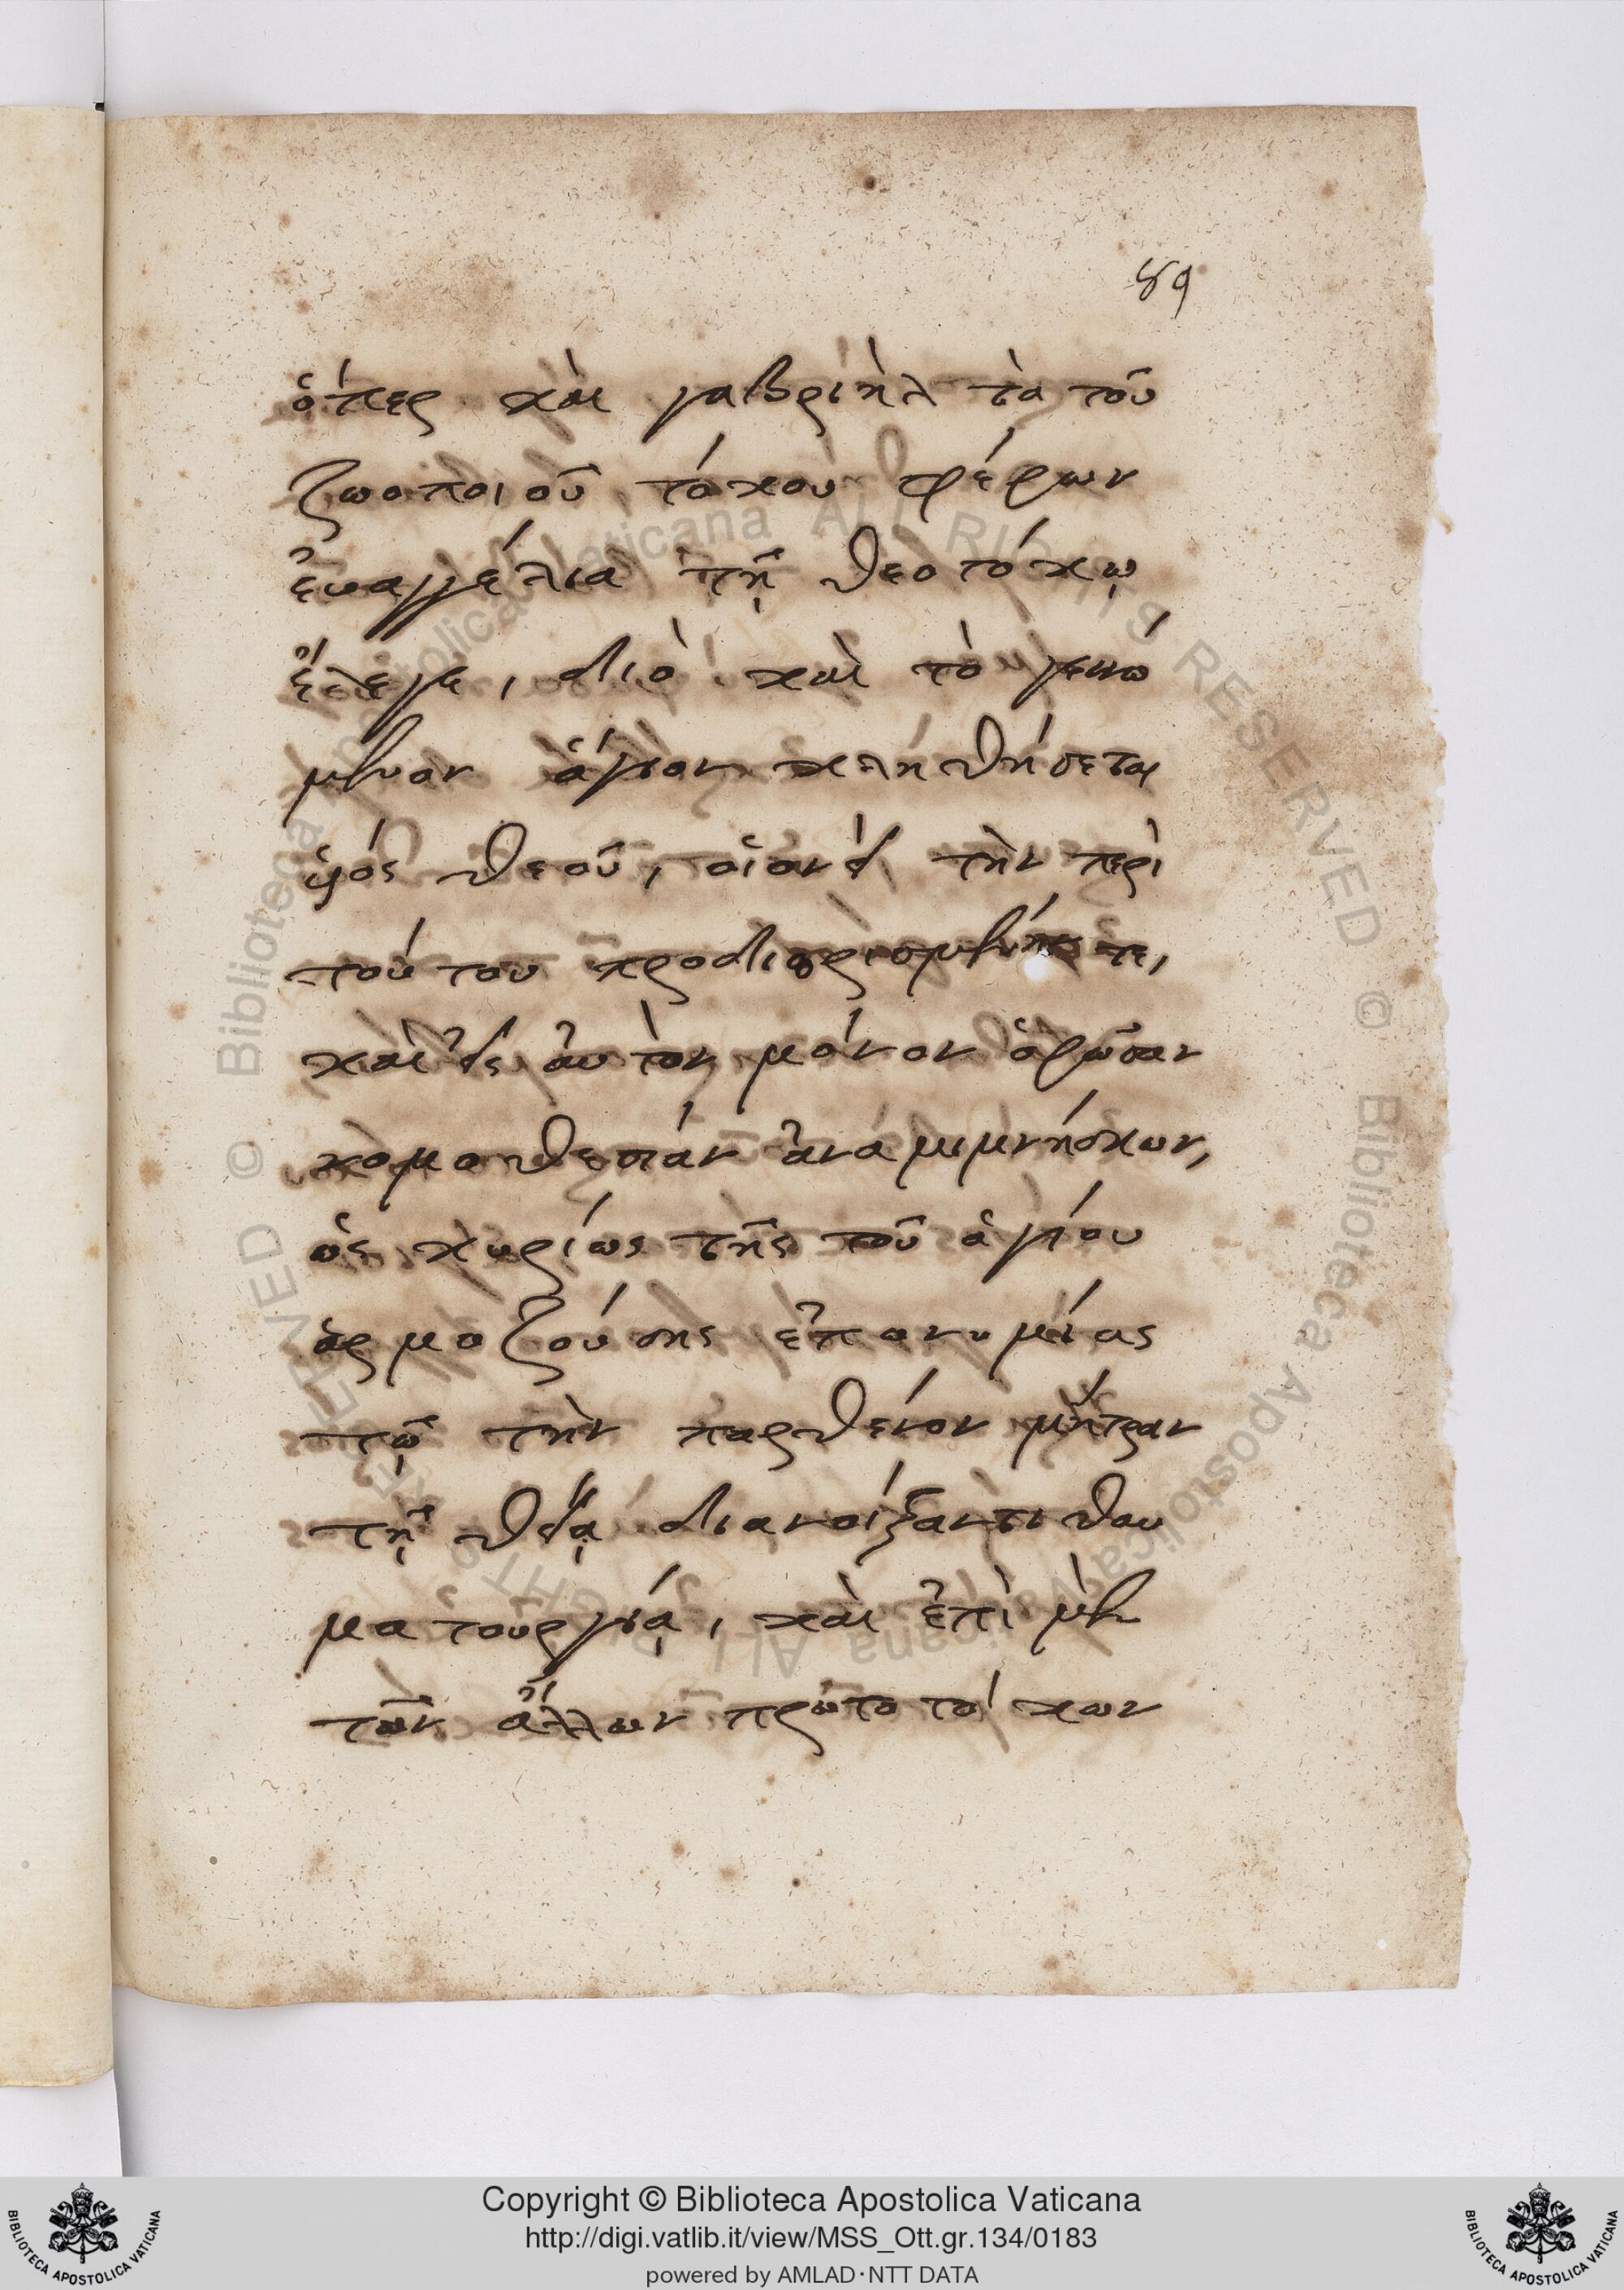 89
ὅπερ καὶ γαβριὴλ τὰ τοῦ
ζωοποιοῦ τόκου φέρων
εὐαγγέλια τῆ θεοτόκω
ἔλεγε, διὸ καὶ τὸ γεννώ
μενον ἅγιον κληθήσεται
υἱός θεοῦ, οἱονεὶ τὴν περὶ
τούτου προδιορισμένην τε,
καὶ εἰς αὐτὸν μόνον ὁρῶσαν
νομοθεσίαν ἀναμιμνήσκων,
ὡς κυρίως τῆς τοῦ ἁγίου
ἁρμοζούσης ἐπωνυμίας
τῷ τὴν παρθένον μήτραν
τῇ θείᾳ διανοίξαντι θαυ
ματουργίᾳ, καὶ ἐπὶ μὲν
τῶν ἄλλων πρωτοτόκων
Copyright © Biblioteca Apostolica Vaticana
http://digi.vatlib.it/view/MSS_Ott.gr.134/0183
powered by AMLAD·NTT DATA